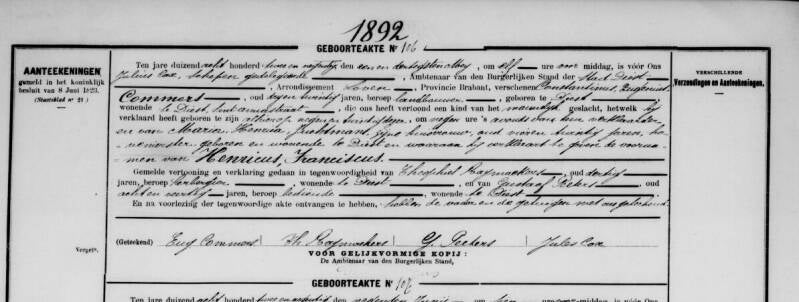 1892
GEBOORTEAKTE N° 106
AANTEEKENINGEN
gemeld in het koninklijk
besluit van 8 Juni 1823.
(Staatsblad n° 21)
VERSCHILLENDE
Verzendingen en Aanteekeningen.
Ten jare duizend acht honderd twee en negentig den een en dertigsten Mey, om elf ure voor middag, is vóór Ons
Julius Cox, schepen gedelegeerd, Ambtenaar van den Burgerlijken Stand der Stad Diest
Arrondissement Loven, Provincie Brabant, verschenen Constantinus, Eugenius
Commers, oud zeven twintig jaren, beroep landbouwer, geboren te Diest
wonende te Diest, die ons heeft vertoond een kind van het mannelijk geslacht, hetwelk hij
verklaard heeft geboren te zijn alhier op negen en twintig dezer, om negen ure 's avonds van hem verklaarder
en van Maria, zijne huisvrouw, oud vier en twintig jaren,
geboren en wonende te Diest en waaraan hij verklaart te geven de voorna-
men van Henricus, Franciscus.
Gemelde vertooning en verklaring gedaan in tegenwoordigheid van Theophiel Raymaekers, oud dertig
jaren, beroep herbergier, wonende te Diest, en van Gustaaf Peeters, oud
acht en veertig jaren, beroep bediende, wonende te Diest
En na voorlezing der tegenwoordige akte ontvangen te hebben, hebben de vader en de getuigen met ons geteekend.
Vergelᵉ.
(Geteekend) Eug Commers Th. Raymaekers G. Peeters Jules Cox
VOOR GELIJKVORMIGE KOPIJ:
De Ambtenaar van den Burgerlijken Stand,
GEBOORTEAKTE N° 107
Ten jare duizend acht honderd twee en negentig den Junij, om tien ure voor middag, is vóór Ons